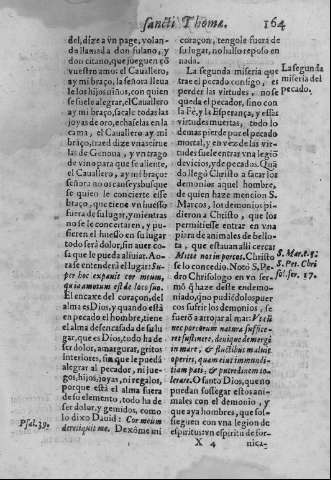 sancti Thomæ.
164
del, dize a vn page, volan-
da llamad a don fulano, y
don citano, que jueguen cõ
vuestro amo: el Cauallero,
ay mi braço! señora traedle
le los hijos niños, con quien
se suele alegrar, el Cauallero
ay mi braço, sacale todas las
joyas de oro, echaselas en la
cama, el Cauallero ay mi
braço, traed dize vnas cirue
las de Genoua, y vn trago
de vino para que se aliente,
el Cauallero, ay mi braço:
señora no os canseys, busque
se quien le concierte esse
braço, que tiene vn huesso
fuera de su lugar, y mientras
no se le concertaren, y pu-
sieren el huesso en su lugar
todo será dolor, sin auer co-
sa que le pueda aliuiar. Ao-
ra se entenderá el lugar: Su-
per hoc expauit cor meum,
quia emotum est de loco suo.
El encaxe del coraçon, del
alma es Dios, y quando está
en pecado el hombre, tiene
el alma desencasada de su lu-
gar, que es Dios, todo ha de
ser dolor, amarguras, gritos
interiores, sin que le pueda
alegrar al pecador, ni jue-
gos, hijos, joyas, ni regalos,
porque está el alma fuera
de su elemento, todo ha de
ser dolor, y gemidos, como
lo dixo Dauid: Cor meum
dereliquit me. Dexóme mi
Psal. 39.
coraçon, tengole fuera de
su lugar, no hallo reposo en
nada.
La segunda miseria que
trae el pecado consigo, es
perder las virtudes, no se
queda el pecador, sino con
la Fè, y la Esperança, y essas
virtudes muertas, todo lo
demas pierde por el pecado
mortal, y en vez de las vir-
tudes suele entrar vna legiõ
de vicios, y de pecados. Quã
do llegó Christo a sacar los
demonios aquel hombre,
de quien haze mencion S.
Marcos, los demonios pi-
dieron a Christo, que los
permitiesse entrar en vna
piara de animales de bello-
ta, que estauan alli cerca:
Mitte nos in porcos. Christo
se lo concedio. Notó S. Pe-
dro Chrisologo en vn ser-
mõ q̃ haze deste endemo-
niado, q̃ no pudiẽdo los puer
cos sufrir los demonios, se
fuerõ a arrojar al mar: Vt cũ
nec porcorum natura suffice-
ret sustinere, denique demergũ
La segunda
miseria del
pecado.
S. Mar. c. 5.
S. Pet. Chri
sol. ser. 17.
in mare, & fluctibus maluit
operiri, quam eius immundi-
tiam pati, & putredinem to-
lerare. O santo Dios, que no
puedan sossegar estos ani-
males con el demonio, y
que aya hombres, que sos-
sieguen con vna legion de
espiritus: vn espiritu de for-
X 4
nica-